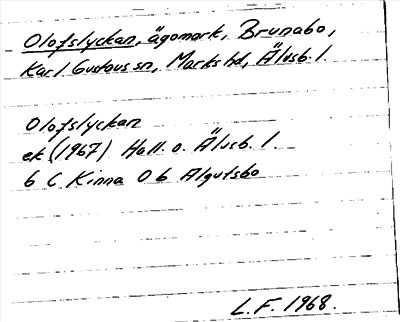 Olofslyckan, ägomark, Brunabo,
Karl Gustavs sn, Marks hd, Älvsb. l.
Olofslyckan
ek (1967) Hall. o. Älvsb. l.
6 C Kinna 0 b Algutsbo
L.F. 1968.